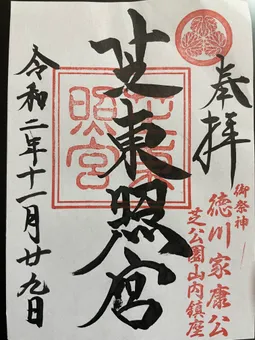 奉拝
御祭神
徳川家康公
芝公園山内鎮座
芝東照宮
芝東
照宮
令和二年十一月廿九日